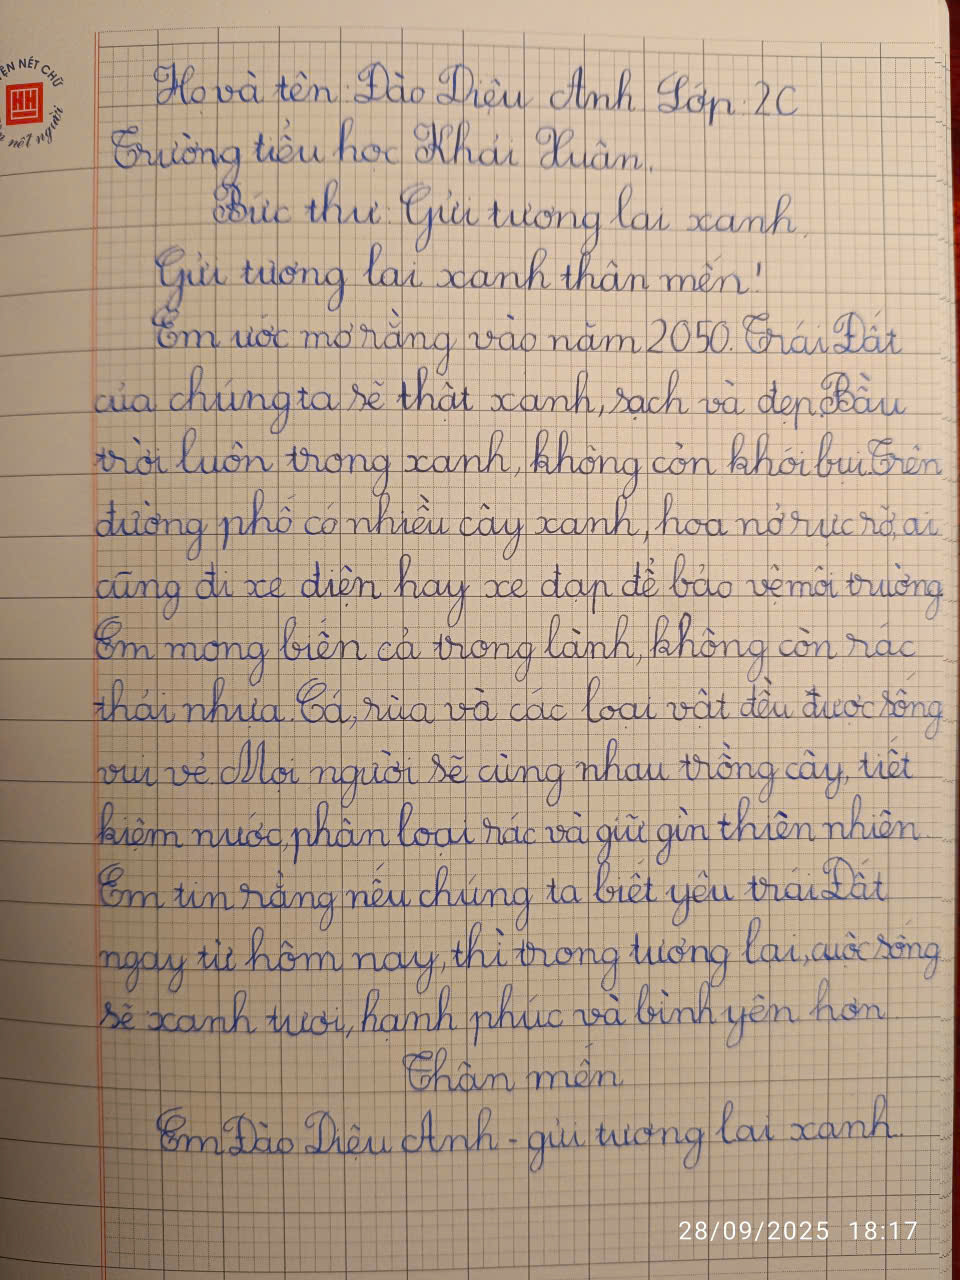 ỆN NÉT CHỮ
HH
nết người
Họ và tên: Đào Diệu Anh Lớp: 2C
Trường tiểu học Khải Xuân.
Bức thư: Gửi tương lai xanh.
Gửi tương lai xanh thân mến!
Em ước mơ rằng vào năm 2050. Trái Đất
của chúng ta sẽ thật xanh, sạch và đẹp. Bầu
trời luôn trong xanh, không còn khói bụi. Trên
đường phố có nhiều cây xanh, hoa nở rực rỡ, ai
cũng đi xe điện hay xe đạp để bảo vệ môi trường.
Em mong biển cả trong lành, không còn rác
thải nhựa. Cá, rùa và các loại vật đều được sống
vui vẻ. Mọi người sẽ cùng nhau trồng cây, tiết
kiệm nước, phân loại rác và giữ gìn thiên nhiên.
Em tin rằng nếu chúng ta biết yêu trái Đất
ngay từ hôm nay, thì trong tương lai, cuộc sống
sẽ xanh tươi, hạnh phúc và bình yên hơn.
Thân mến
Em Đào Diệu Anh - gửi tương lai xanh.
28/09/2025 18:17